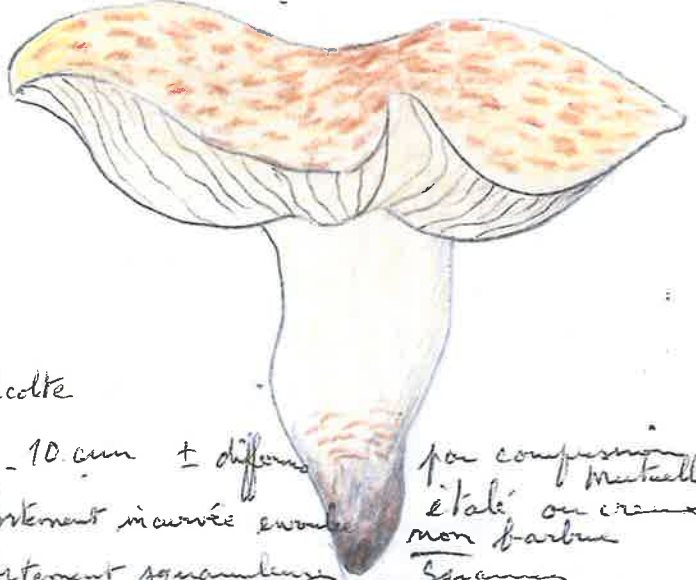 colte
_ 10 cm ± difforme par compression mutuelle
ortement incurvée enroulée étalé ou creux
non barbue
ortement squamuleuse Squames